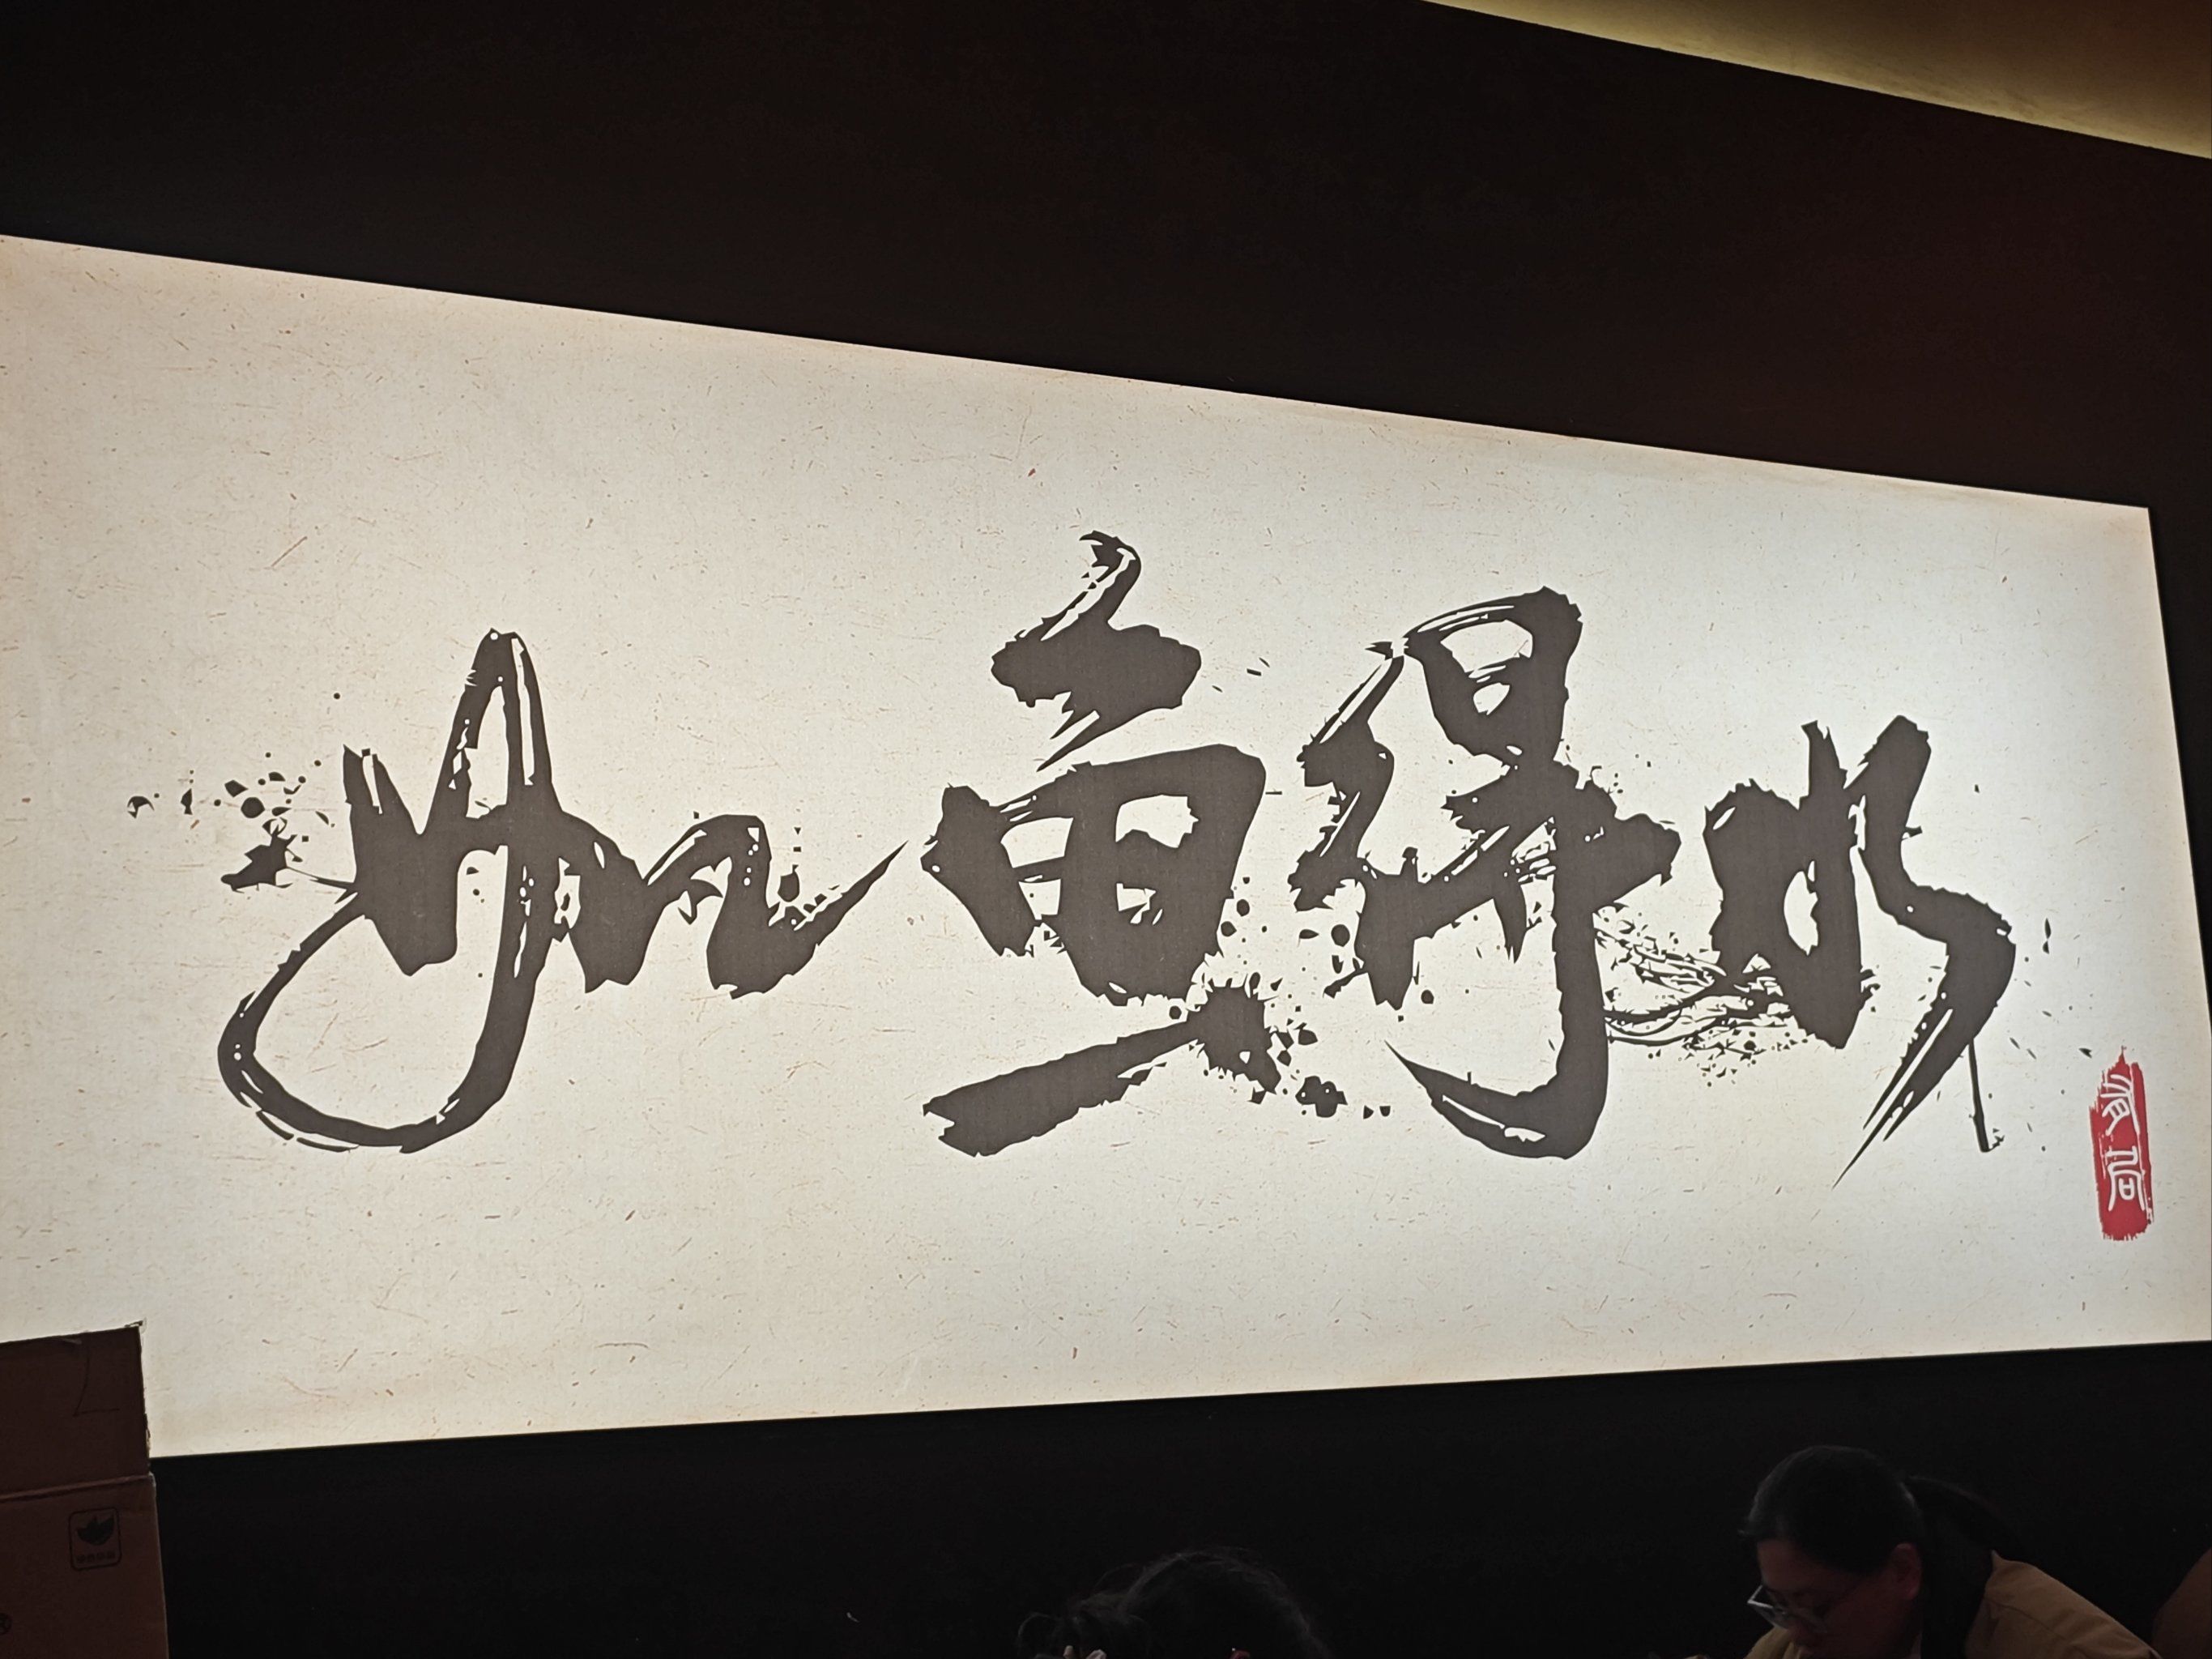 如鱼得水